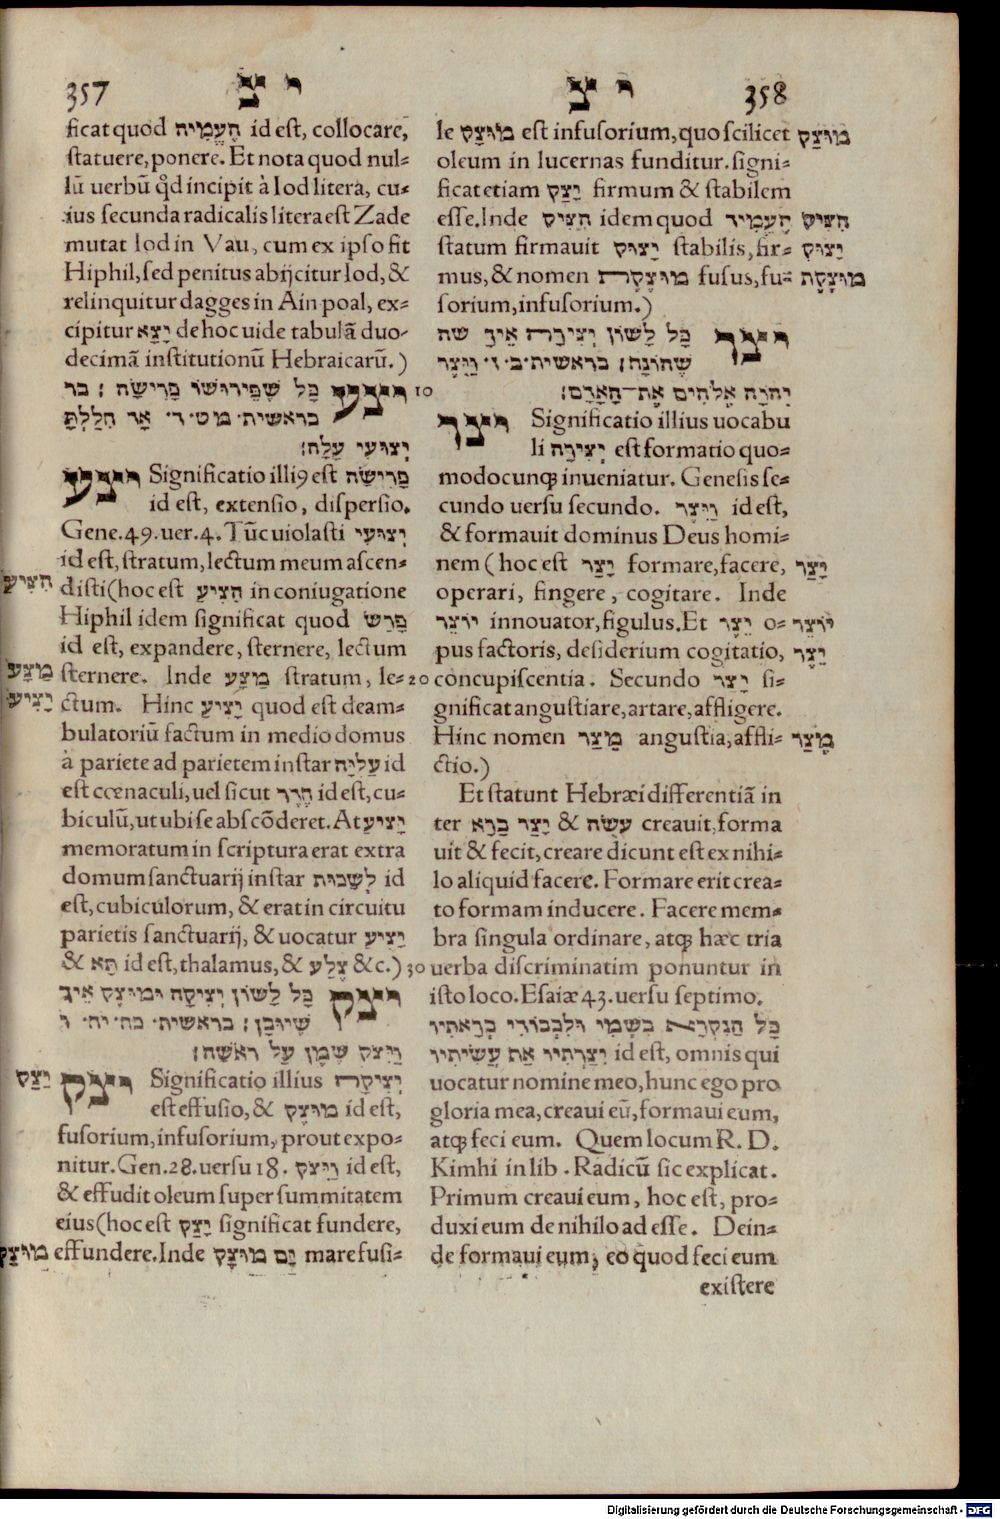 357 יצ
ficat quod הֶעֱמִיה id est, collocare,
statuere, ponere. Et nota quod nul-
lū uerbū qđ incipit à Iod litera, cu-
ius secunda radicalis litera est Zade
mutat Iod in Vau, cum ex ipso fit
Hiphil, sed penitus abijcitur Iod, &
relinquitur dagges in Ain poal, ex-
cipitur יָצָא de hoc uide tabulā duo-
decimā institutionū Hebraicarū.)
יצע כָּל שֶׁפֵּירוּשׁוֹ פָּרִישָׂה ׃ בר
בראשית· מט· ד· אָז חִלַּלְתָּ
יְצוּעִי עָלָה׃
יצע Significatio illi9 est פָּרִישָׂה
id est, extensio, dispersio.
Gene. 49. uer. 4. Tūc uiolasti יְצוּעִי
id est, stratum, lectum meum ascen-
הִצִּיעַ disti (hoc est הִצִּיעַ in coniugatione
Hiphil idem significat quod פָּרַשׂ
id est, expandere, sternere, lectum
מַצָּע sternere. Inde מַצָּע stratum, le-
יָצִיעַ ctum. Hinc יָצִיעַ quod est deam-
bulatoriū factum in medio domus
à pariete ad parietem instar עַלִיָּה id
est cœnaculi, uel sicut חֶדֶר id est, cu-
biculū, ut ubi se abscōderet. At יָצִיעַ
memoratum in scriptura erat extra
domum sanctuarij instar לְשָׁכוֹת id
est, cubiculorum, & erat in circuitu
parietis sanctuarij, & uocatur יָצִיעַ
& תָּא id est, thalamus, & צֶלַע &c.)
יצק כָּל לָשׁוֹן יְצִיקָה וּמוּצָק אֵיךְ
שֶׁיוּבָן׃ בראשית· כח· יח· ו
וַיִּצֹק שֶׁמֶן עַל רֹאשָׁהּ׃
יָצַק יצק Significatio illius יְצִיקָה
est effusio, & מוּצָק id est,
fusorium, infusorium, prout expo-
nitur. Gen. 28. uersu 18. וַיִּצֹק id est,
& effudit oleum super summitatem
eius (hoc est יָצַק significat fundere,
מוּצָק effundere. Inde יָם מוּצָק mare fusi-
יצ 358
le מוּצָק est infusorium, quo scilicet מוּצָק
oleum in lucernas funditur. signi-
ficat etiam יָצַק firmum & stabilem
esse. Inde הִצִּיק idem quod הֶעֱמִיד הִצִּיק
statum firmauit יָצוּק stabilis, fir- יָצוּק
mus, & nomen מוּצֶקֶת fusus, fu- מוּצָקֶת
sorium, infusorium.)
יצר כָּל לָשׁוֹן יְצִירָה אֵיךְ שה
שֶׁתִּהְיֶה׃ בראשית· ב· ז· וַיִּיצֶר
10 יְהֹוָה אֱלֹהִים אֶת־הָאָדָם׃
יצר Significatio illius uocabu
li יְצִירָה est formatio quo-
modocunq; inueniatur. Genesis se-
cundo uersu secundo. וַיִּיצֶר id est,
& formauit dominus Deus homi-
nem (hoc est יָצַר formare, facere, יָצַר
operari, fingere, cogitare. Inde
יוֹצֵר innouator, figulus. Et יֵצֶר o- יוֹצֵר
pus factoris, desiderium cogitatio, יֵצֶר
20 concupiscentia. Secundo יָצַר si-
gnificat angustiare, artare, affligere.
Hinc nomen מֵצַר angustia, affli- מֵצַר
ctio.)
Et statunt Hebræi differentiā in
ter בָּרָא יָצַר & עָשָׂה creauit, forma
uit & fecit, creare dicunt est ex nihi-
lo aliquid facere. Formare erit crea-
to formam inducere. Facere mem-
bra singula ordinare, atq; hæc tria
30 uerba discriminatim ponuntur in
isto loco. Esaiæ 43. uersu septimo.
כָּל הַנִּקְרָא בִשְׁמִי וְלִכְבוֹדִי בְּרָאתִיו
יְצַרְתִּיו אַף עֲשִׂיתִיו id est, omnis qui
uocatur nomine meo, hunc ego pro
gloria mea, creaui eū, formaui eum,
atq; feci eum. Quem locum R. D.
Kimhi in lib. Radicū sic explicat.
Primum creaui eum, hoc est, pro-
duxi eum de nihilo ad esse. Dein-
de formaui eum, eo quod feci eum
existere
Digitalisierung gefördert durch die Deutsche Forschungsgemeinschaft - DFG